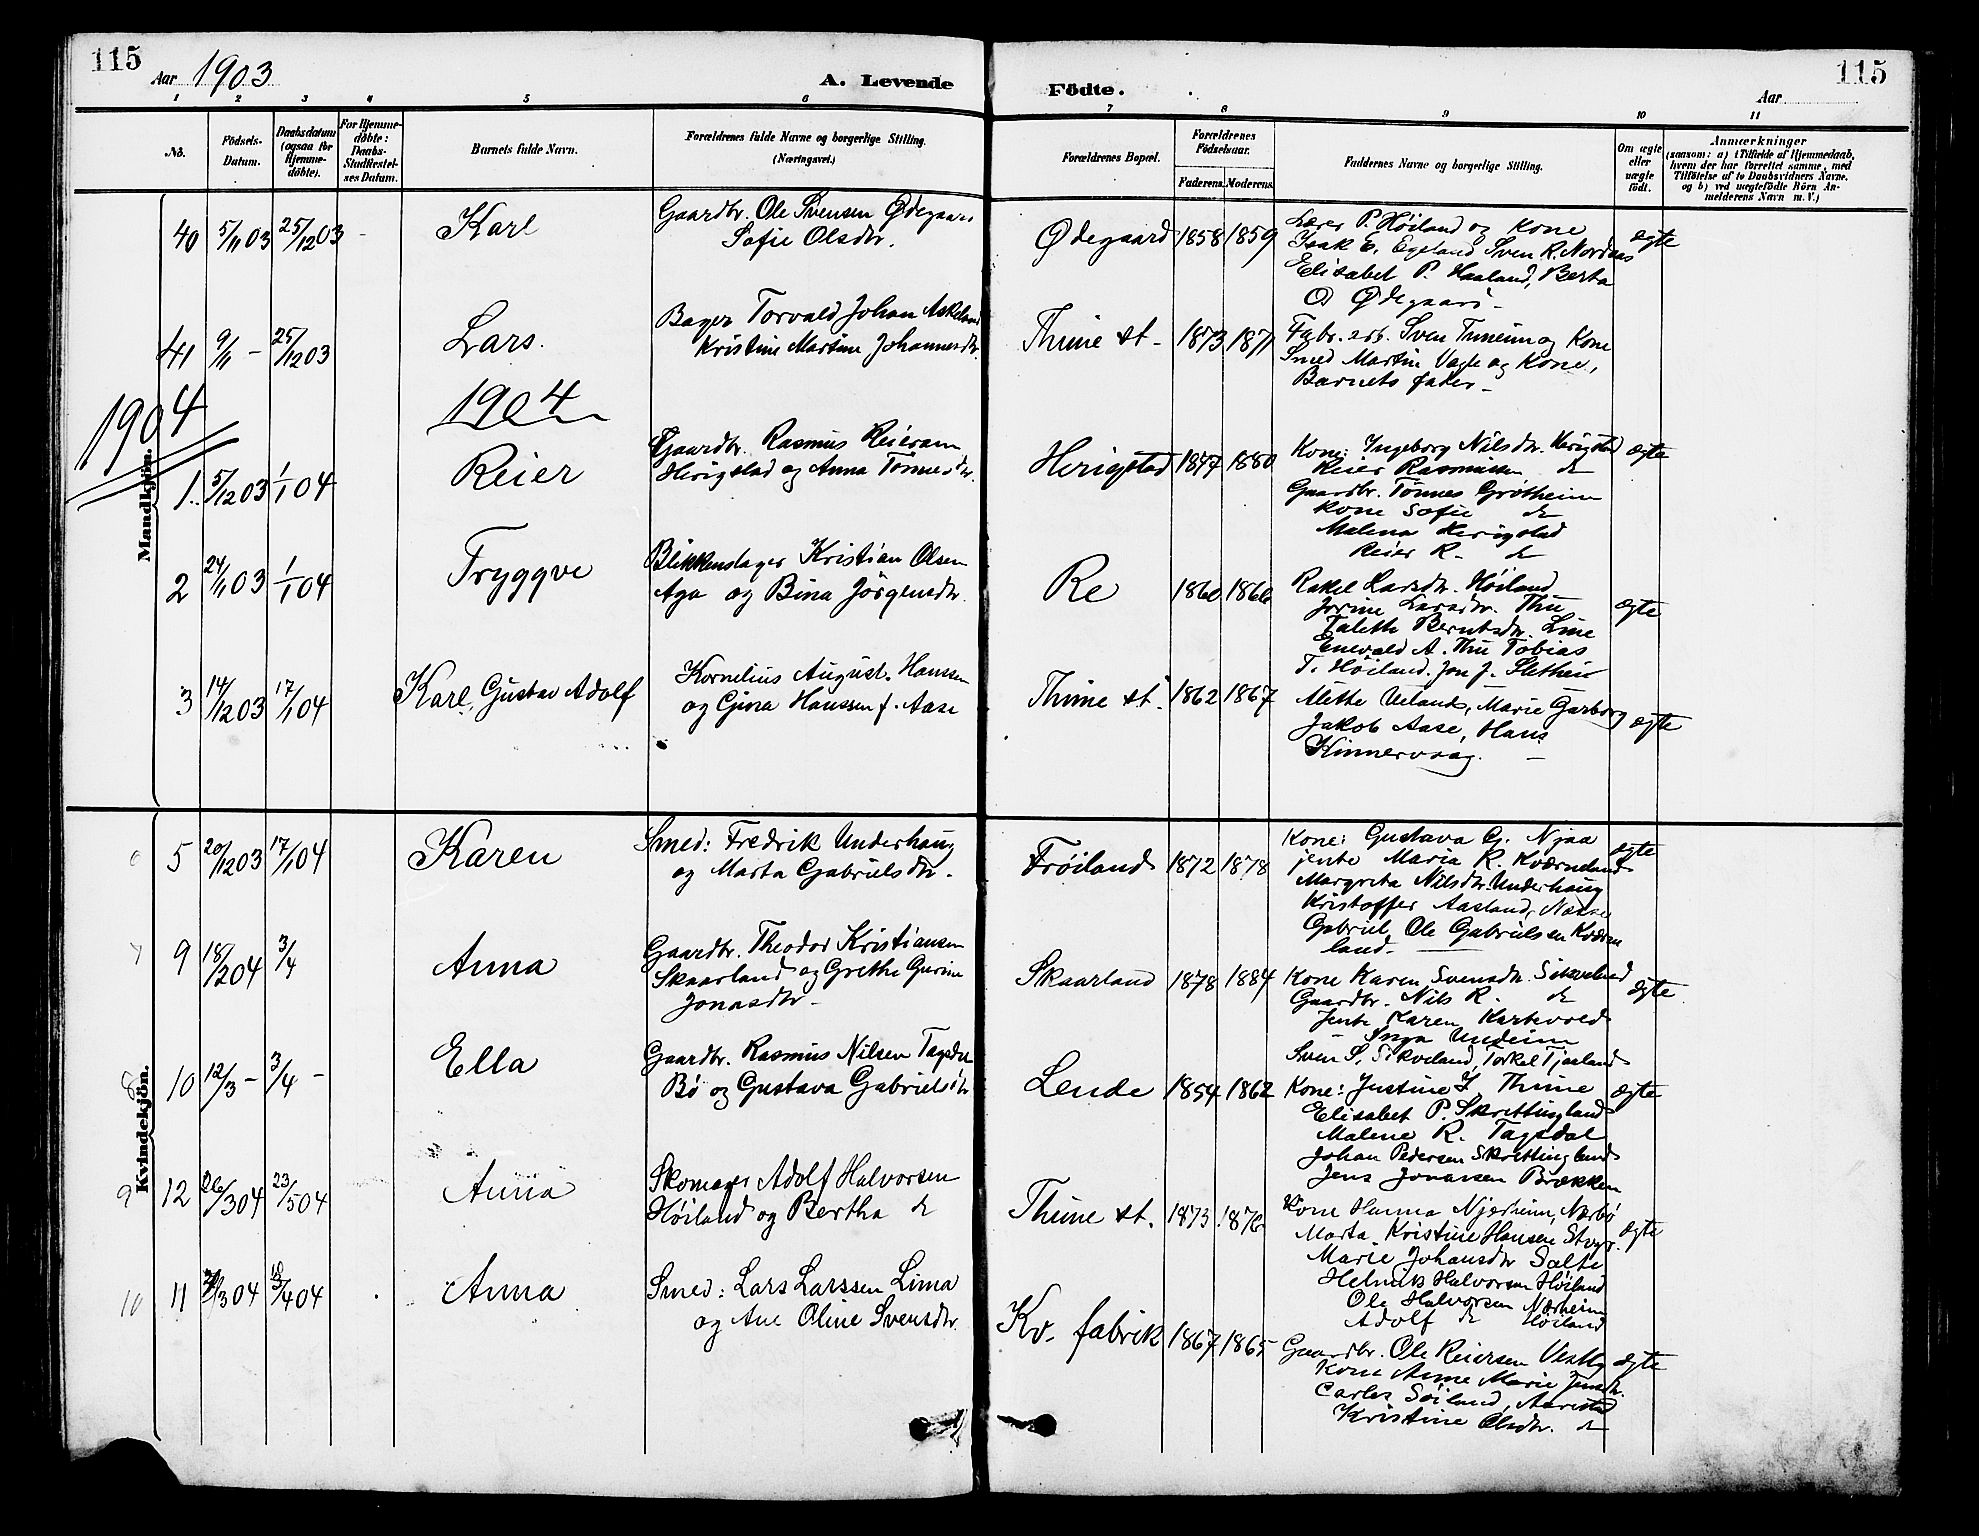 115
Aar 1903
A. Levende
Födte.
Aar
115
1 2 3 4 5 6 7 8 9 10 11
No.
Födsels-Datum.
Daabsdatum (ogsaa for Hjemme-döbte).
For Hjemme-döbte: Daabs-Stadfæstel-ses Datum.
Barnets fulde Navn.
Forældrenes fulde Navne og borgerlige Stilling. (Næringsvei.)
Forældrenes Bopæl.
Forældrenes Födselsaar.
Faderens. Moderens.
Faddernes Navne og borgerlige Stilling.
Om ægte eller uægte födt.
Anmærkninger
(saasom: a) i Tilfælde af Hjemmedaab, hvem der har forrettet samme, med Tilföielse af to Daabsvidners Navne. og b) ved uægtefödte Börn An-melderens Navn m. V.)
Mandkjön.
40 5/11 03 25/12 03 - Karl
Gaardbr. Ole Svensen Ødegaard
Sofie Olsdtr.
Ødegaard 1858 1859
Lærer P. Höiland og Kone
Isak E. Egeland Sven R. Nordaas
Elisabet P. Haaland, Berta
O Ødegaard -
ægte
41 9/11 - 25/12 03 Lars.
Bager Torvald Johan Askeland
Kristine Martine Johannesdtr.
Thime st. 1873 1871
Fabr. arb. Sven Timeim og Kone
Smed Martin Vagle og Kone,
Barnets fader -
1904
1904
1. 5/12 03 1/1 04 Reier
Gaardbr. Rasmus Reiersen
Herigstad og Anna Tönnesdtr.
Herigstad 1877 1880
Kone: Ingeborg Nilsdtr. Herigstad
Reier Rasmussen do
Gaardbr. Tönnes Grötheim
Kone Sofie do
Malena Herigstad
Reier R. do
ægte
2 24/11 03 1/1 04 Tryggve
Blikkenslager Kristian Olsen
Aga og Bina Jörgensdtr.
Re 1860 1866
Rakel Larsdtr. Höiland
Jorine Larsdtr. Thu
Talette Berntsdtr. Line
Enevald A. Thu Tobias
T. Höiland. Jon J. Sletheim
ægte
3 14/12 03 17/1 04 Karl Gustav Adolf
Kornelius August. Hanssen
og Gina Hanssen f. Aase
Thime st. 1862 1867
Alette Ueland, Marie Garborg
Jakob Aase, Hans
Kinnervaag. -
ægte
Kvindekjön.
6 5 20/12 03 17/1 04 Karen
Smed: Fredrik Underhaug
og Marta Gabrielsdtr.
Fröiland 1872 1878
Kone: Gustava G. Njaa
jente Maria R. Kværneland
Margreta Nilsdtr. Underhaug
Kristoffer Aasland, Næsse
Gabriel, Ole Gabrielsen Kværne
land.
ægte
7 9 18/2 04 3/4 Anna
Gaardbr. Theodor Kristiansen
Skaarland og Grethe Gurine
Jonasdtr. -
Skaarland 1878 1884
Kone Karen Svensdtr. Sikveland
Gaardbr. Nils R. do
Jente Karen Kartevold
Inga Undeim
Sven S. Sikveland, Torkel Tjaaland
ægte
8 10 12/3 - 3/4 - Ella
Gaardbr. Rasmus Nilsen Tagsdal
Bö og Gustava Gabrielsdtr
Lende 1854 1862
Kone: Justine I Thime
Elisabet P. Skrettingland
Malene R. Tagsdal
Johan Pedersen Skrettingland
Jens Jonassen Brækken
ægte
9 12 26/3 04 23/5 04 Anna
Skomager Adolf Halvorsen
Höiland og Bertha do
Thime st. 1873 1876
Kone Hanna Njærheim, Nærbö
Marta Kristine Hansen Stvgr.
Marie Johansdtr Salte
Helmik Halvorsen Höiland
Ole Halvorsen Nærheim
Adolf do Höiland
ægte
10 11 3 04 4 04 Anna
Smed: Lars Larssen Lima
og Ane Oline Svensdtr.
Kv. fabrik 1867 1865
Gaardbr. Ole Reiersen Vestly
Kone Anne Marie Jensdtr.
Carles Söiland, Aarestad
Kristine Olsdtr. do
ægte